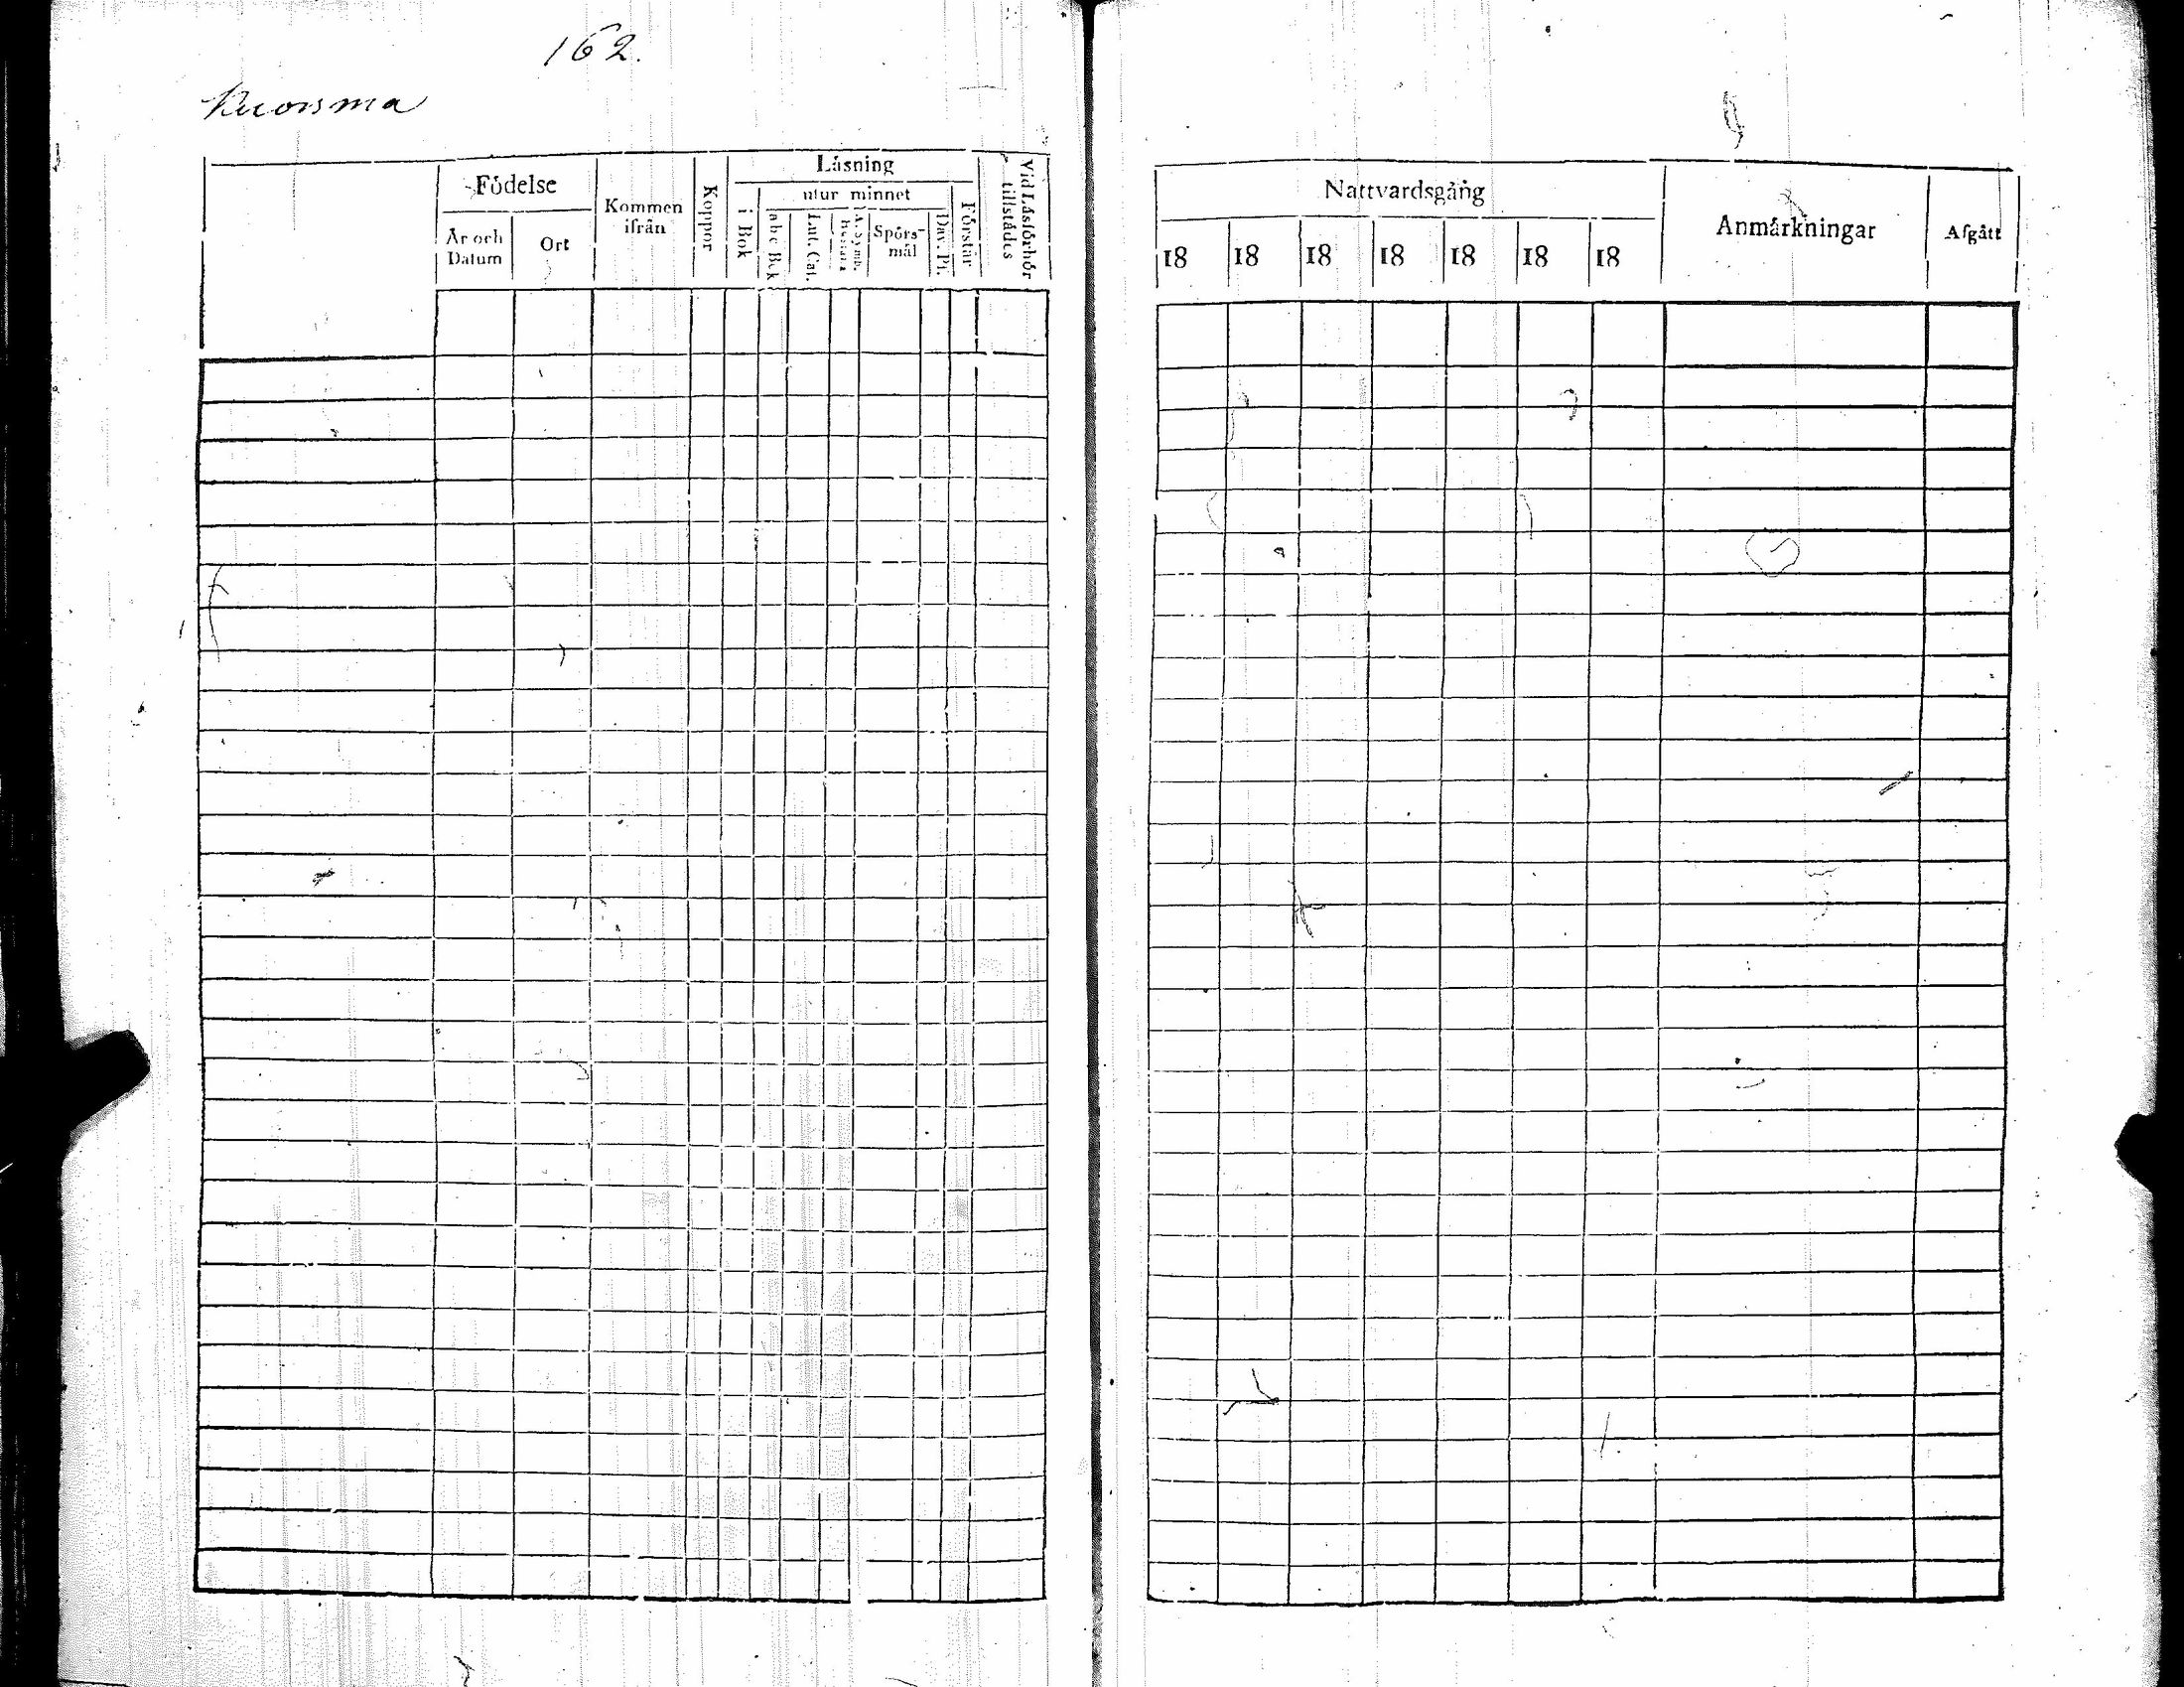 162.
Kuorsma
Födelse
År och Datum
Ort
Kommen ifrån
Koppor
Läsning
i Bok
utur minnet
abc Bok
Lut. Cat.
A. Symb.
Spörs-mål
Dav. Ps.
Förstår
Vid Läsförhör tillstådes
Nattvardsgång
18 18 18 18 18 18 18
Anmärkningar
Afgått